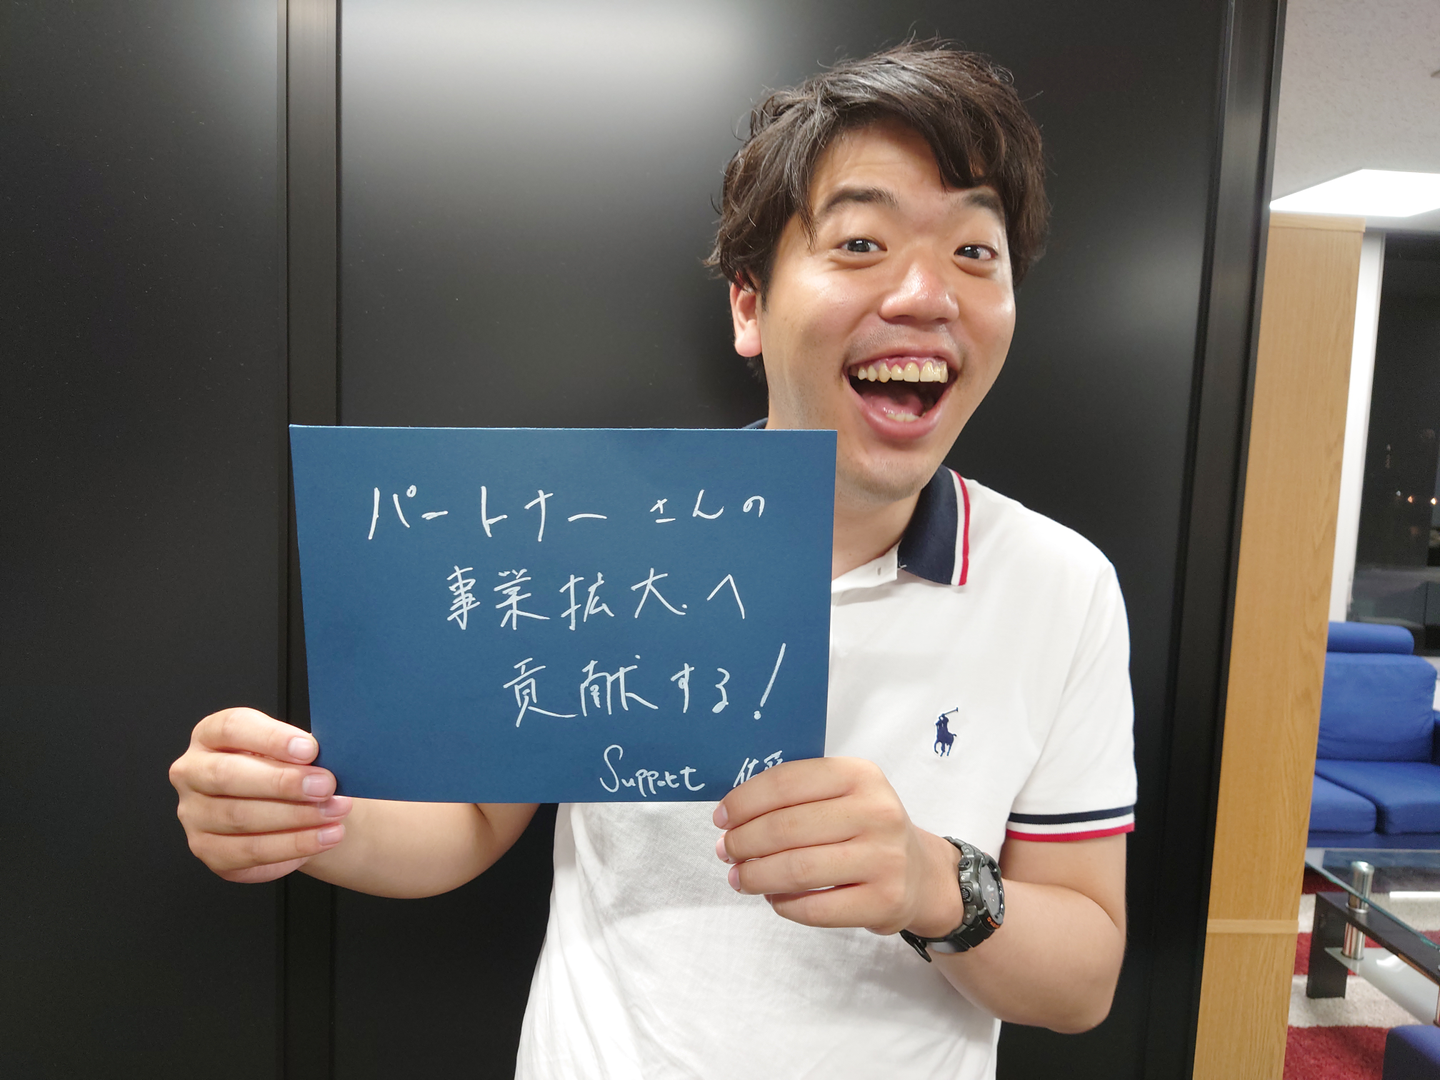 パートナーさんの
事業拡大へ
貢献する!
Support